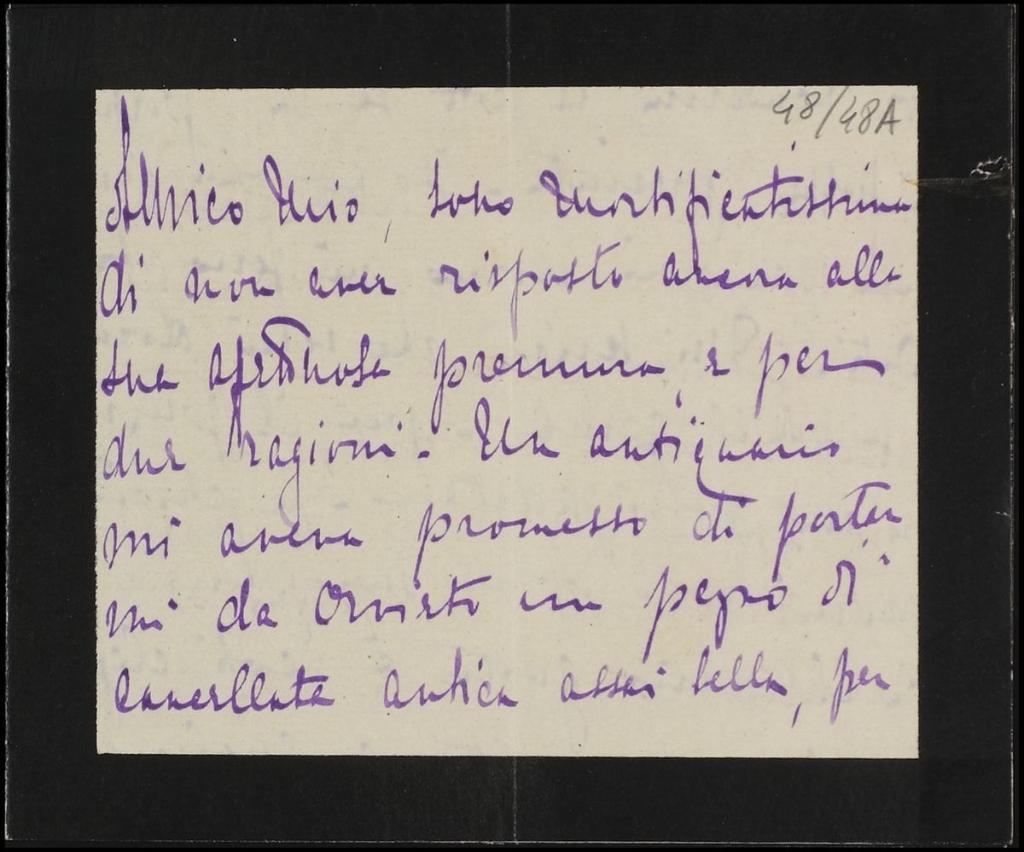 48/48A
Amico mio, sono mortificatissima
di non aver risposto ancora alla
sua affettuosa premura, e per
due ragioni. Un antiquario
mi aveva promesso di portar
mi da Orvieto un pezzo di
cancellata antica assai bella, per